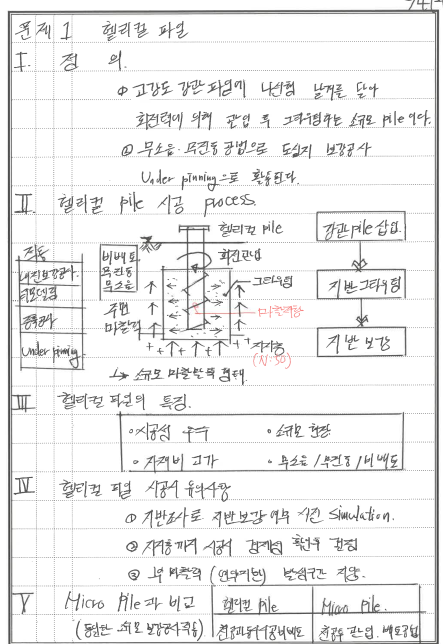 문제 1 헬리컬 파일
I. 정 의.
① 고강도 강관 파일에 나선형 날개를 달아
회전력에 의해 관입 후 그라우팅하는 소규모 pile 이다.
② 무소음·무진동 공법으로 도심지 보강공사
Under pinning으로 활용된다.
II. 헬리컬 pile 시공 process.
헬리컬 pile
회전관입
강관 pile 삽입.
적용
내진보강공사.
리모델링
증축공사
Under pinning.
비배토
무진동
무소음
주면
마찰력
그라우팅
마찰력
지반그라우팅
지반 보강
지지층
(N:50)
↳ 소규모 마찰말뚝 형태.
III 헬리컬 파일의 특징.
◦시공성 우수 ◦소규모 현장
◦자재비 고가 ◦무소음/무진동/비배토
IV 헬리컬 파일 시공시 유의사항
① 지반조사로 지반보강 여부 사전 Simulation.
② 지지층까지 시공시 경제성 확인후 결정
③ 부마찰력 (연약지반) 발생구간 지양.
V Micro Pile과 비교
헬리컬 pile
Micro Pile.
(동일한 소규모 보강공사적용)
천공과 동시시공 비배토
천공후 관입. 배토공법